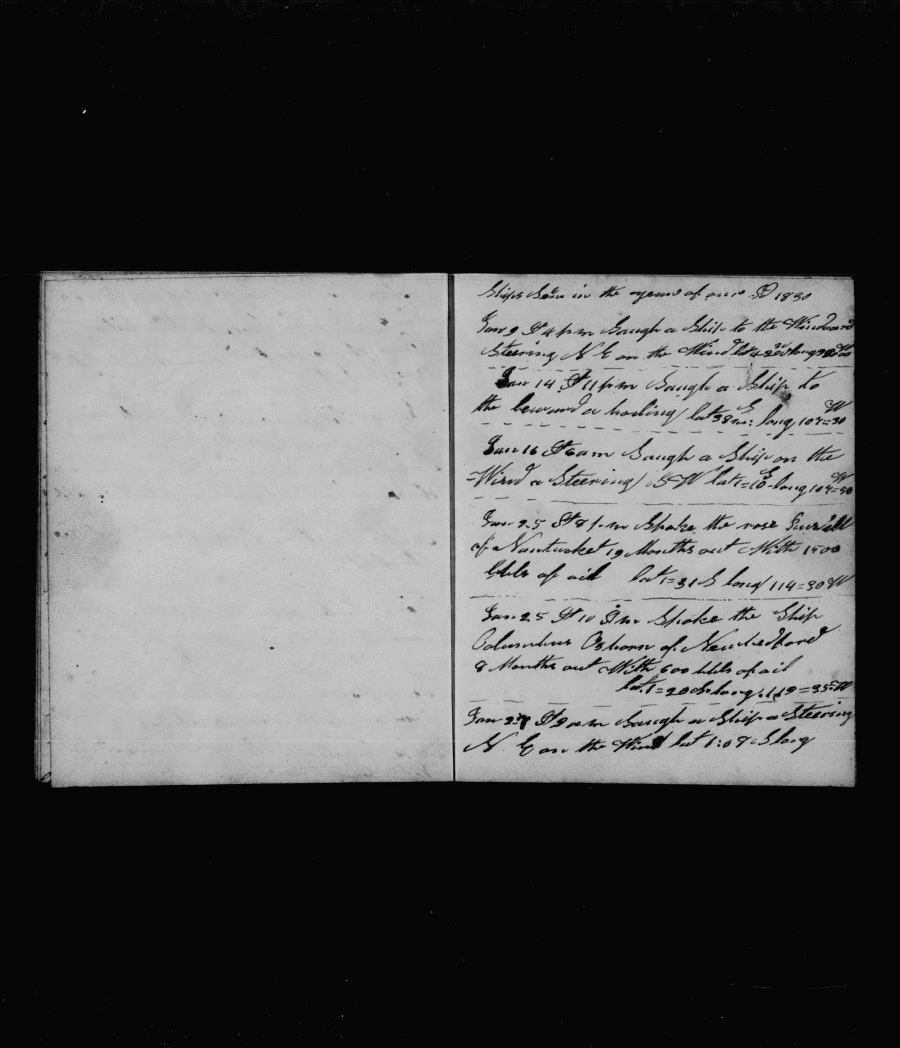 Ships Seen in the year of our 1830
Jan 9 At 4 pm Saugh a Ship to the Windward
Steering N E on the Wind lat 4 long
Jan 14 At 11 pm Saugh a Ship to
the leward a lat 38 long 107=30 W
Jan 16 At 6 am Saugh a Ship on the
Wind a Steering S=W lat 1=10 long 107=50 W
Jan 25 At 8 pm Spoke the rose
of Nantucket 19 Months out With 1500
bbls of oil lat 1=31 S long 114=30 W
Jan 25 At 10 Spoke the Ship
Columbus Osborn of Newbedford
8 Months out With 600 bbls of oil
lat 1=20 S long 119=35 W
Jan 27 At 9 am Saugh a Ship a Steering
N E on the Wind lat 1:07 S long